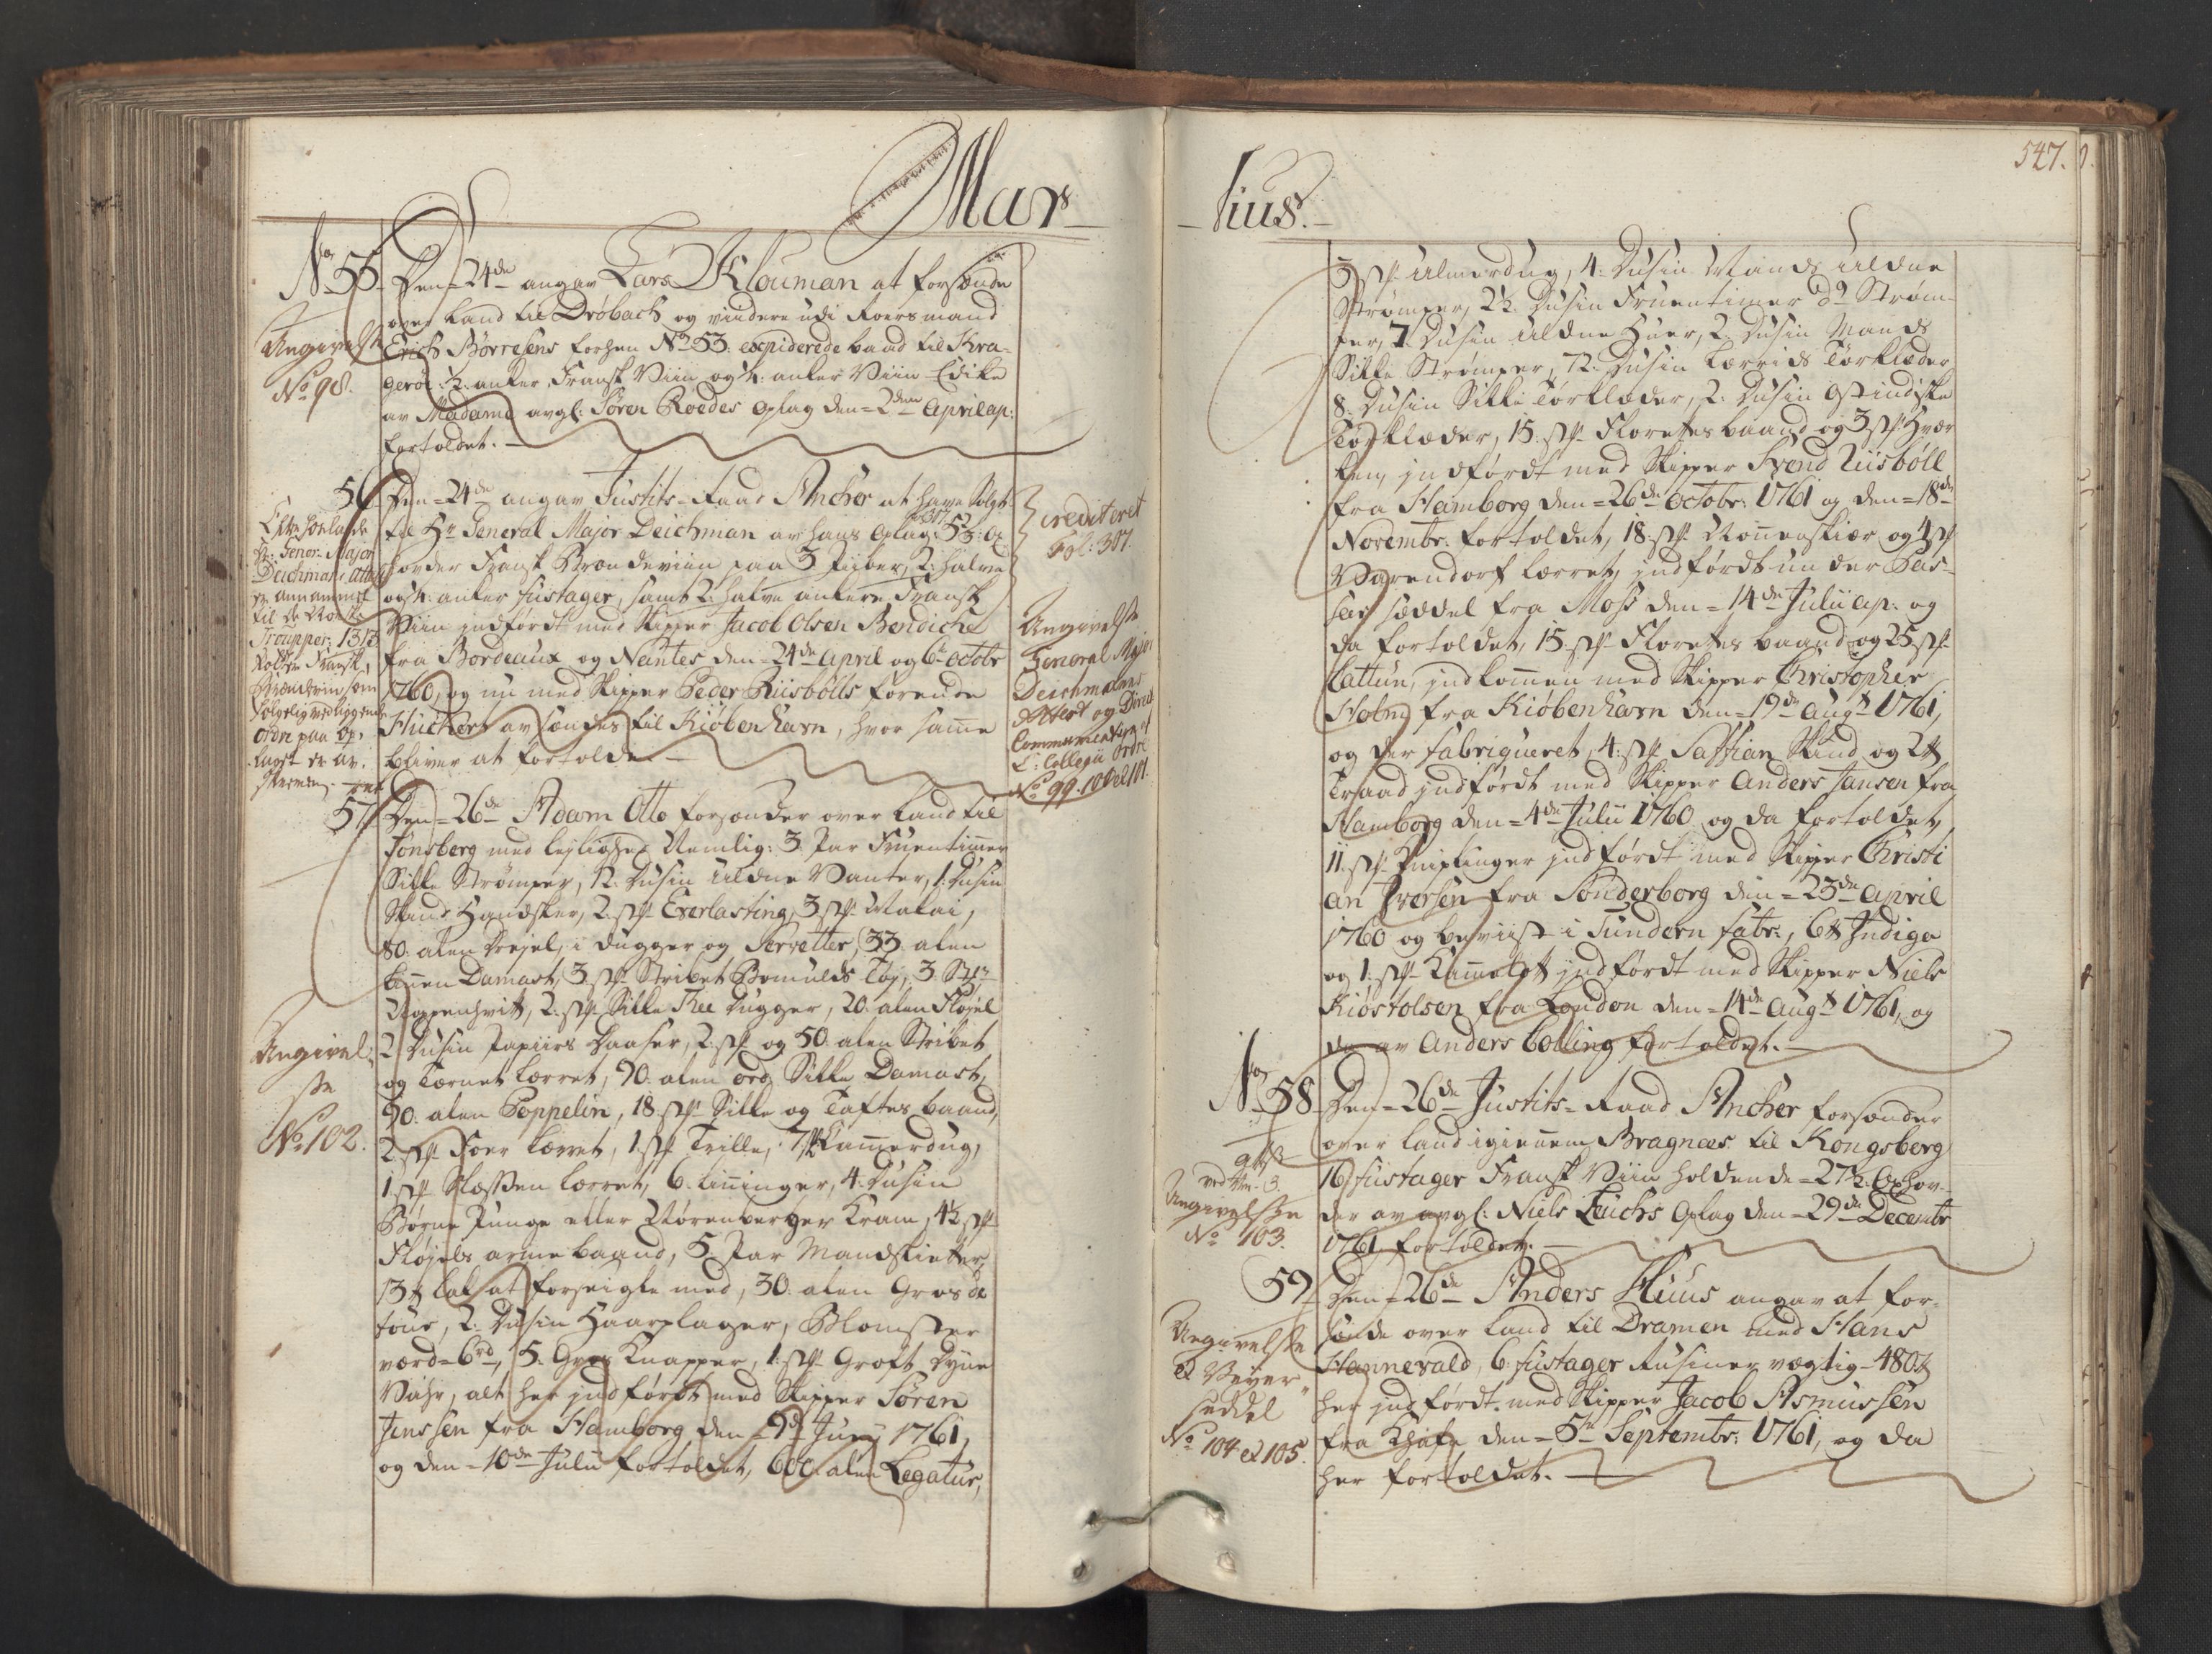 Mar-
-tius.
547.
No 55
Den 24de angav Lars Klouman at forsænde
over Land til Dröbach og videre udi Roersmand
Erich Börresens forhen No 53. expiderede baad til Kra-
geröe: ½ anker Fransk Viin og ¼ anker Viin Edike
av Madame avgl: Sören Roedes Oplag den 2den April ap:
fortoldet.
Angivelse
No 98.
56
Den 24de angav Justits-Raad Ancher at have Solgt
til Hr General Major Deichman av hans Oplag 5
hoveder Fransk Brændeviin paa 3 Piiber, 2 halve
og ¼ anker fustager, samt 2 halve ankere Fransk
Viin indfördt med Skipper Jacob Olsen Bendiche
fra Bordeaux og Nantes den 24de April og 6te Octobr
1760, og nu med Skipper Peder Riisbölls förende
Huchert avsændes til Kiöbenhavn, hvor samme
bliver at fortolde.
Hr: Gener: Major
Deichmans Attest
er annammet
til de Norske
Troupper 1313
Potter Fransk
Brændeviin som
fölgelig vedliggende
Ordre paa Op-
laget er av-
skreven.
Crediteret
Fol: 307.
Angivelse
General Major
Deichmans
Attest og Direct
Commercien
C: Collegii Ordre
No 99. 100 et 101.
57
Den 26de Adam Otto forsender over Land til
Tönsberg med leylighed Nemlig: 3 Par Fruentimmer
Silke Strömper, 12 Dusin uldne Vanter, 1 Dusin
Skind Handsker, 2 stk Everlasting, 3 stk Malai,
80 alen Drejel, i dugger og Servetter, 33 alen
Linnen Damast, 3 stk Stribet Bomulds Töy, 3 Stk
2 stk Silke Thee Dugger, 20 alen Fløjel
2 Dusin Papiirs Daaser, 2 stk og 50 alen Stribet
og Tærnet lærret, 90 alen ord Silke Damask,
90 alen Poppelin, 18 stk Silke og Taftes baand,
2 stk Foer lærret, 1 stk Trille, 7 stk Kammerdug,
1 stk Slesken lærret, 6 Linninger, 4 Dusin
Börne Punge eller Nörenberger Kram, 4½ stk
Flöjels arme baand, 5 Par Mandskietter,
13 ℔ Lak at forseigle med, 30 alen Gros de
tour, 2 Dusin Haarplager, Blomster
værd 6 rd, 5 Gros Knapper, 1 stk Groft Dyne
Vahr, alt her indfördt med Skipper Sören
Jenssen fra Hamborg den 9de Juny 1761,
og den 10de Julii fortoldet, 600 alen Legatur,
Angivel-
se
No 102.
3 stk Ulmerdug, 4 Dusin Mands uldne
Strömper, 2½ Dusin Fruentimer do Ström-
per, 7 Dusin uldne Huer, 2 Dusin Mands
Silke Strömper, 12 Dusin Lærrids Törklæder
8 Dusin Silke Törklæder, 2 Dusin Ostindiske
Törklæder, 15 stk Florettes baand og 3 stk
indfördt med Skipper Svend Riisböll
fra Hamborg den 26de Octobr: 1761 og den 18de
Novembr: fortoldet, 18 stk og 4 stk
Varendorf lærret, indfördt under Pas-
ser sæddel fra Moss den 14de Julii ap: og
da fortoldet, 15 stk Florettes baand og 25 stk
Cattun, indkommen med Skipper Christopher
Holm fra Kiöbenhavn den 19de Augt 1761,
og der fabriqueret, 4 stk Saffian Skind og 2 ℔
Traad indfördt med Skipper Anders Jansen fra
Hamborg den 4de Julii 1760 og da fortoldet,
11 stk Kniplinger indfördt med Skipper Christi
an Iversen fra Sönderborg den 23de April
1760 og beviist i Tundern fabr:, 6 ℔ Indigo
og 1 stk Kammelott indfördt med Skipper Niels
Kiöstolsen fra London den 14de Augt 1761, og
da av Anders Colling fortoldet.
No 58
Den 26de Justits-Raad Ancher forsender
over land igiennem Bragnæs til Kongsberg
16 fustager Fransk Viin holdende 27½ Oxhov-
der av avgl: Niels Leuchs Oplag den 29de Decembr
1761 fortoldet.
Angivelse
No 103.
59
Den 26de Anders Huus angav at for-
sende over Land til Dramen med Hans
Hannevald, 6 fustager Rusiner vægtig 480 ℔
her indfördt med Skipper Jacob Asmussen
fra den 5te Septembr: 1761, og da
her fortoldet.
Angivelse
& Veyer-
seddel
No 104 et 105.